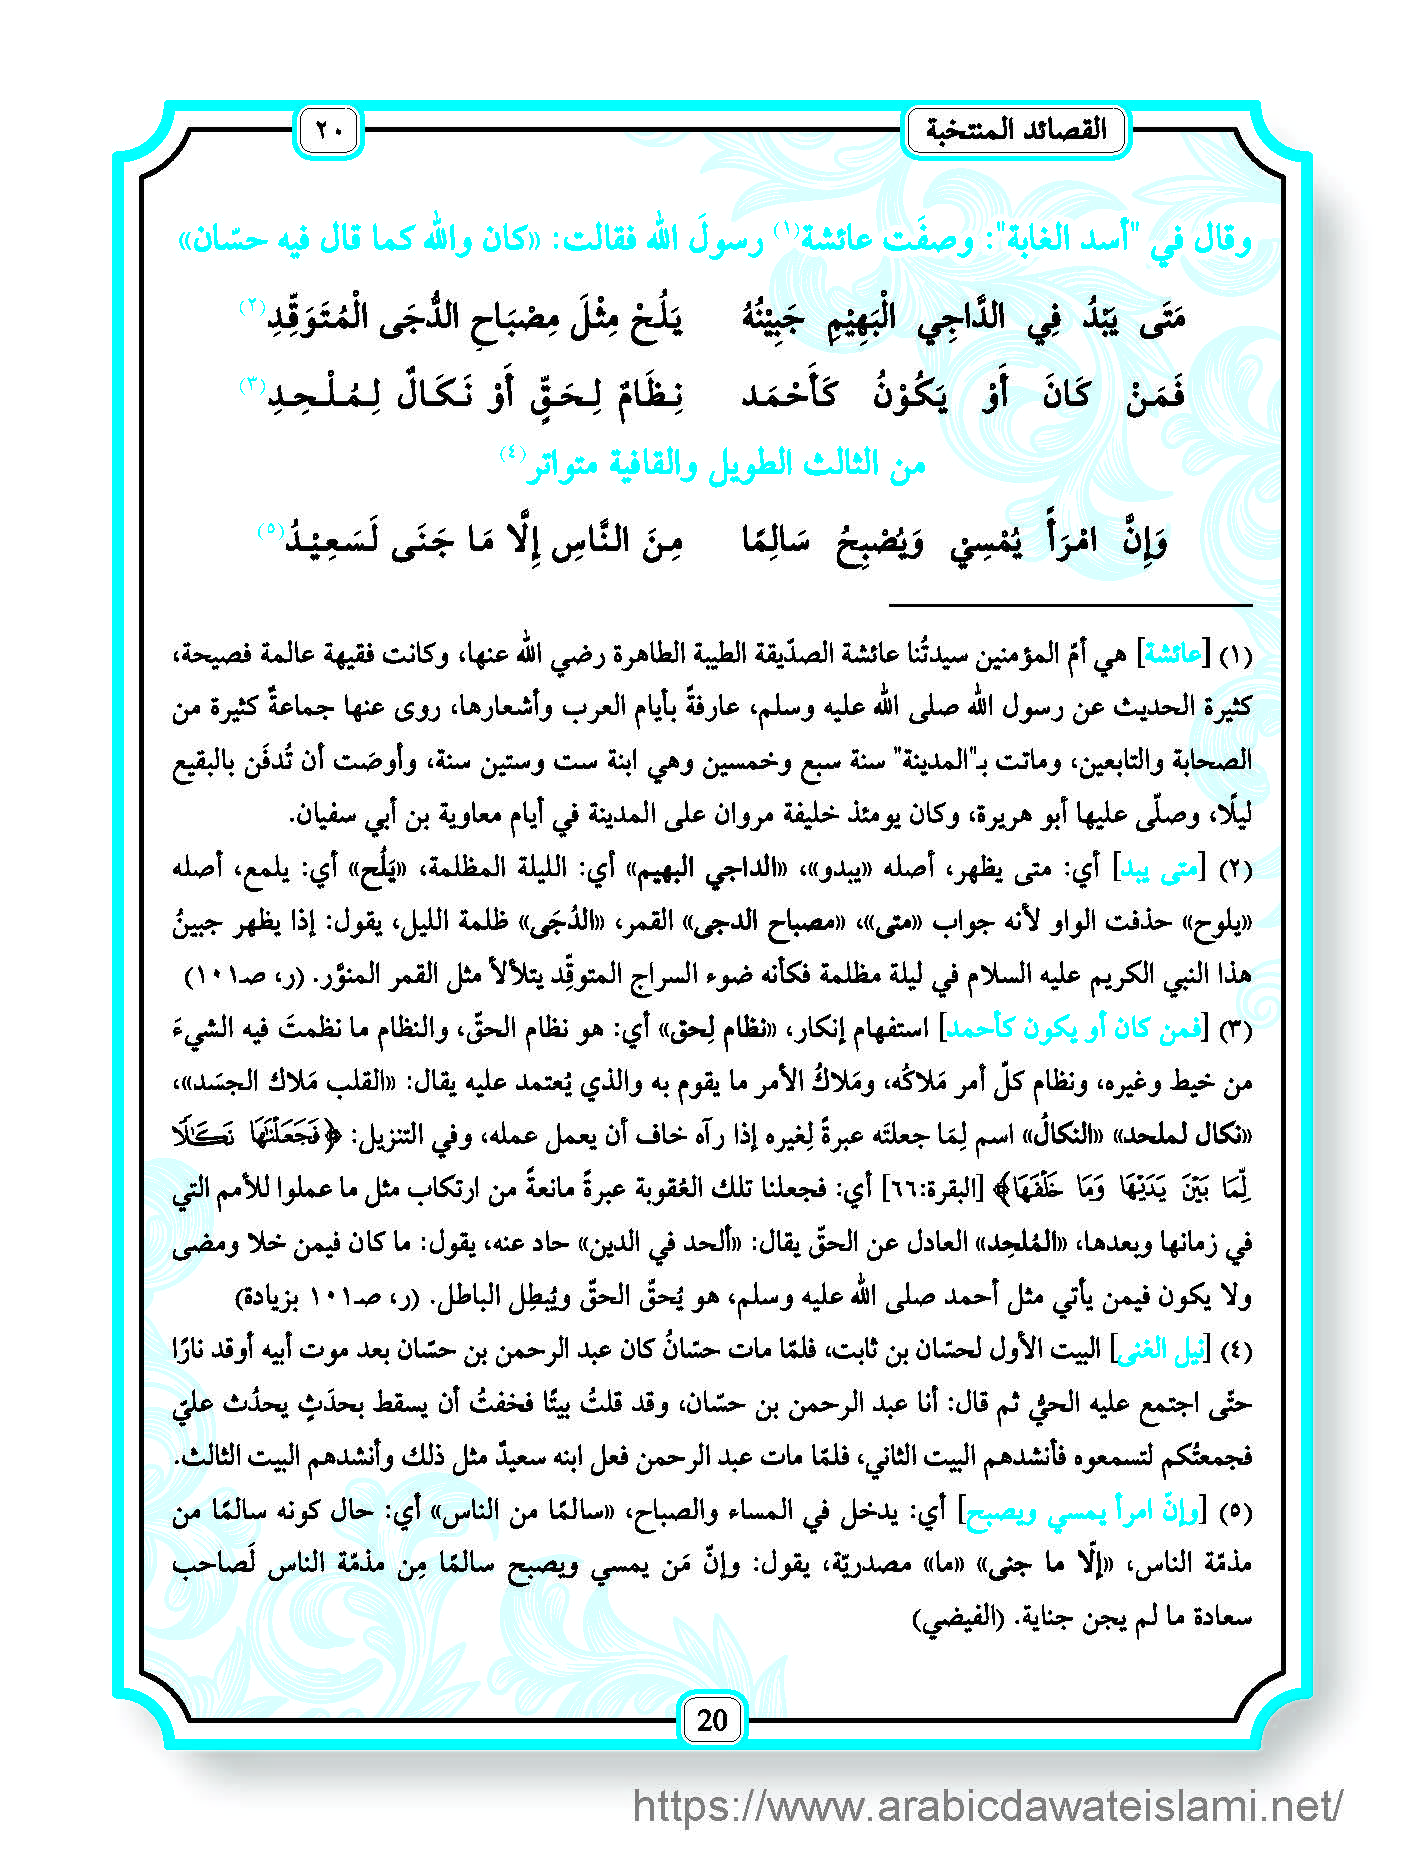 القصائد المنتخبة
٢٠
وقال في "أسد الغابة": وصفَت عائشة(١) رسولَ الله فقالت: «كان والله كما قال فيه حسّان»
مَتَى يَبْدُ فِي الدَّاجِي الْبَهِيْمِ جَبِيْنُهُ يَلُحْ مِثْلَ مِصْبَاحِ الدُّجَى الْمُتَوَقِّدِ(٢)
فَمَنْ كَانَ أَوْ يَكُوْنُ كَأَحْمَد نِـظَامٌ لِـحَـقٍّ أَوْ نَـكَـالٌ لِـمُـلْـحِـدِ(٣)
من الثالث الطويل والقافية متواتر(٤)
وَإِنَّ امْرَأً يُمْسِيْ وَيُصْبِحُ سَالِمًا مِـنَ الـنَّـاسِ إِلَّا مَا جَنَى لَـسَـعِـيْـدُ(٥)
(١) [عائشة] هي أمّ المؤمنين سيدتُنا عائشة الصدّيقة الطيبة الطاهرة رضي الله عنها، وكانت فقيهة عالمة فصيحة،
كثيرة الحديث عن رسول الله صلى الله عليه وسلم، عارفةً بأيام العرب وأشعارها، روى عنها جماعةٌ كثيرة من
الصحابة والتابعين، وماتت بـ"المدينة" سنة سبع وخمسين وهي ابنة ست وستين سنة، وأوصَت أن تُدفَن بالبقيع
ليلًا، وصلّى عليها أبو هريرة، وكان يومئذ خليفة مروان على المدينة في أيام معاوية بن أبي سفيان.
(٢) [متى يبد] أي: متى يظهر، أصله «يبدو»، «الداجي البهيم» أي: الليلة المظلمة، «يَلُح» أي: يلمع، أصله
«يلوح» حذفت الواو لأنه جواب «متى»، «مصباح الدجى» القمر، «الدُجَى» ظلمة الليل، يقول: إذا يظهر جبينُ
هذا النبي الكريم عليه السلام في ليلة مظلمة فكأنه ضوء السراج المتوقِّد يتلألأ مثل القمر المنوَّر. (ر، صـ١٠١)
(٣) [فمن كان أو يكون كأحمد] استفهام إنكار، «نظام لِحق» أي: هو نظام الحقّ، والنظام ما نظمتَ فيه الشيءَ
من خيط وغيره، ونظام كلّ أمر مَلاكُه، ومَلاكُ الأمر ما يقوم به والذي يُعتمد عليه يقال: «القلب مَلاك الجسَد»،
«نكال لملحد» «النكالُ» اسم لِمَا جعلتَه عبرةً لِغيره إذا رآه خاف أن يعمل عمله، وفي التنزيل: ﴿فَجَعَلۡنَٰهَا نَكَٰلٗا
لِّمَا بَيۡنَ يَدَيۡهَا وَمَا خَلۡفَهَا﴾ [البقرة:٦٦] أي: فجعلنا تلك العُقوبة عبرةً مانعةً من ارتكاب مثل ما عملوا للأمم التي
في زمانها وبعدها، «المُلحِد» العادل عن الحقّ يقال: «ألحد في الدين» حاد عنه، يقول: ما كان فيمن خلا ومضى
ولا يكون فيمن يأتي مثل أحمد صلى الله عليه وسلم، هو يُحقّ الحقّ ويُبطِل الباطل. (ر، صـ١٠١ بزيادة)
(٤) [نيل الغنى] البيت الأول لحسّان بن ثابت، فلمّا مات حسّانُ كان عبد الرحمن بن حسّان بعد موت أبيه أوقد نارًا
حتّى اجتمع عليه الحيُّ ثم قال: أنا عبد الرحمن بن حسّان، وقد قلتُ بيتًا فخفتُ أن يسقط بحدَثٍ يحدُث عليّ
فجمعتُكم لتسمعوه فأنشدهم البيت الثاني، فلمّا مات عبد الرحمن فعل ابنه سعيدٌ مثل ذلك وأنشدهم البيت الثالث.
(٥) [وإنّ امرأ يمسي ويصبح] أي: يدخل في المساء والصباح، «سالمًا من الناس» أي: حال كونه سالمًا من
مذمّة الناس، «إلّا ما جنى» «ما» مصدريّة، يقول: وإنّ مَن يمسي ويصبح سالمًا مِن مذمّة الناس لَصاحب
سعادة ما لم يجن جناية. (الفيضي)
20
https://www.arabicdawateislami.net/